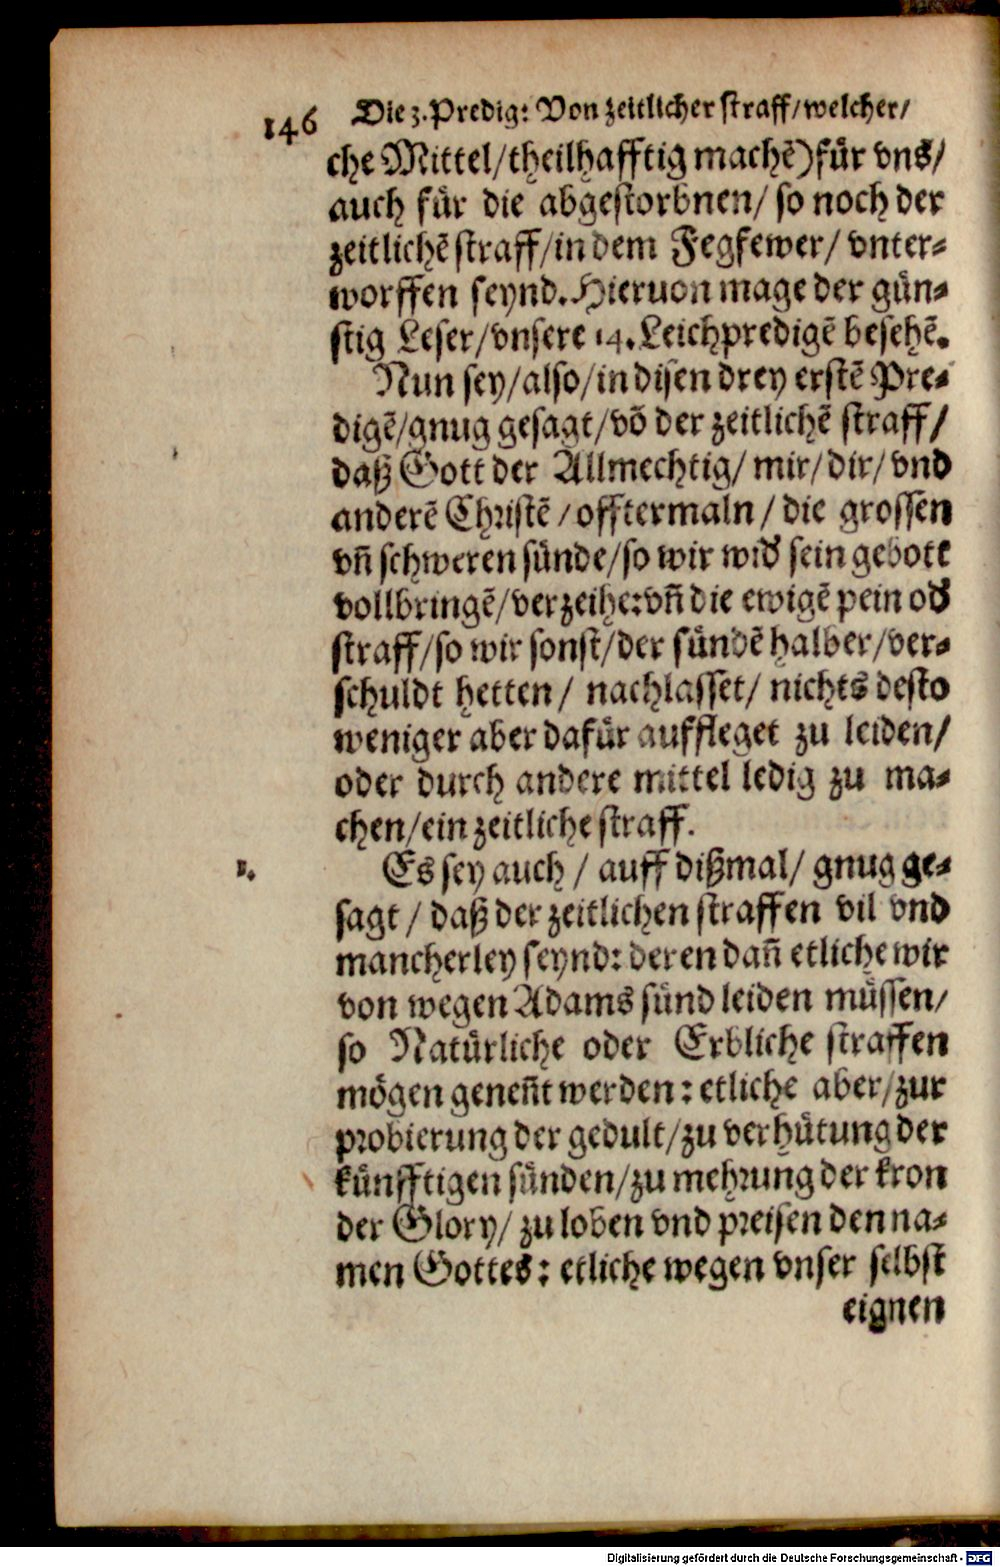 146 Die 3. Predig: Von zeitlicher straff/welcher/
che Mittel/theilhafftig machẽ) für vns/
auch für die abgestorbnen/ so noch der
zeitlichẽ straff/in dem Fegfewer/ vnter-
worffen seynd. Hieruon mage der gün-
stig Leser/vnsere 14. Leichpredigẽ besehẽ.
Nun sey/also/in disen drey erstẽ Pre-
digẽ/gnug gesagt/võ der zeitlichẽ straff/
daß Gott der Allmechtig/ mir/ dir/ vnd
anderẽ Christẽ/offtermaln/ die grossen
vñ schweren sünde/so wir wid̃ sein gebott
vollbringẽ/verzeihe:vñ die ewigẽ pein od̃
straff/so wir sonst/der sündẽ halber/ver-
schuldt hetten/ nachlasset/ nichts desto
weniger aber dafür auffleget zu leiden/
oder durch andere mittel ledig zu ma-
chen/ein zeitliche straff.
1. Es sey auch / auff dißmal/ gnug ge-
sagt / daß der zeitlichen straffen vil vnd
mancherley seynd: deren dañ etliche wir
von wegen Adams sünd leiden müssen/
so Natürliche oder Erbliche straffen
mögen geneñt werden: etliche aber/zur
probierung der gedult/zu verhütung der
künfftigen sünden/zu mehrung der kron
der Glory/ zu loben vnd preisen den na-
men Gottes: etliche wegen vnser selbst
eignen
Digitalisierung gefördert durch die Deutsche Forschungsgemeinschaft - DFG